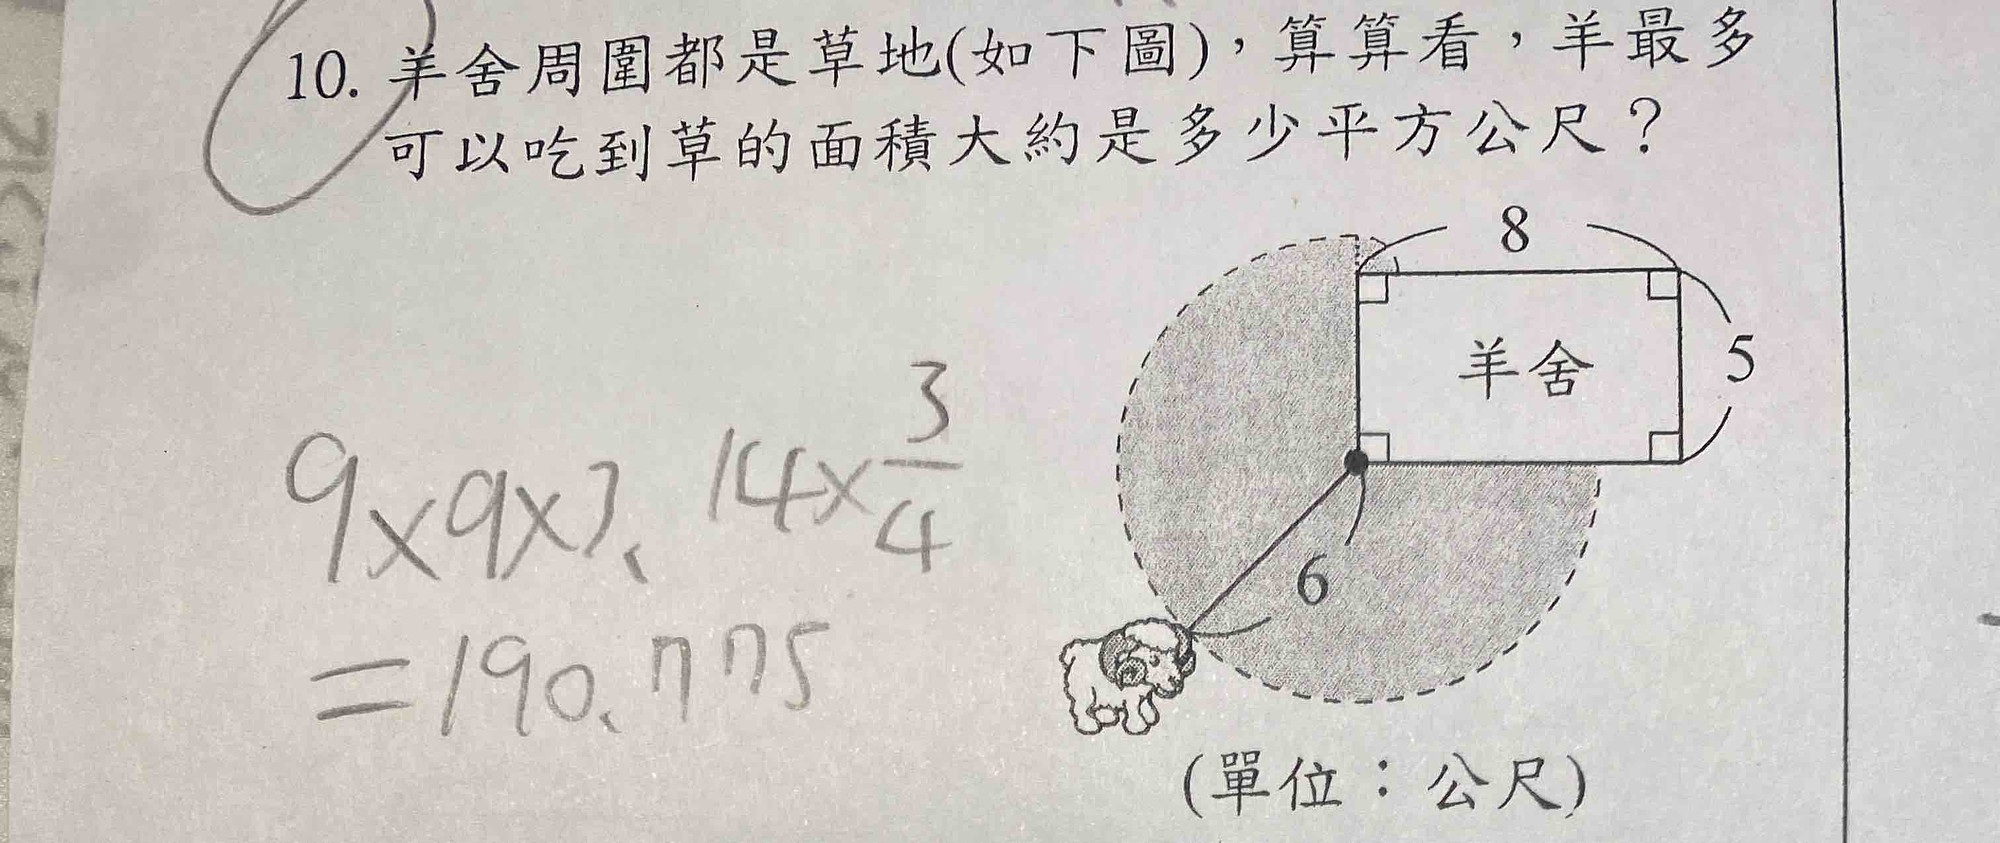 10. 羊舍周圍都是草地(如下圖)，算算看，羊最多
可以吃到草的面積大約是多少平方公尺？
8
羊舍
5
6
9×9×3.14×3/4
=190.775
(單位：公尺)